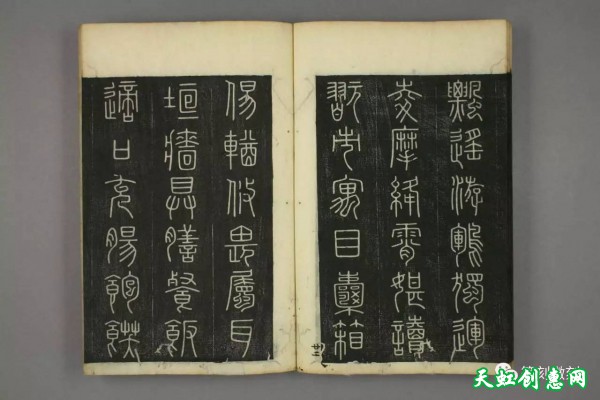 飄遙游鶤獨運
夌摩絳霄媅讀
翫市寓目囊箱
易輶攸畏屬耳
垣牆具膳餐飯
適口充腸飽飫
天虹创意网